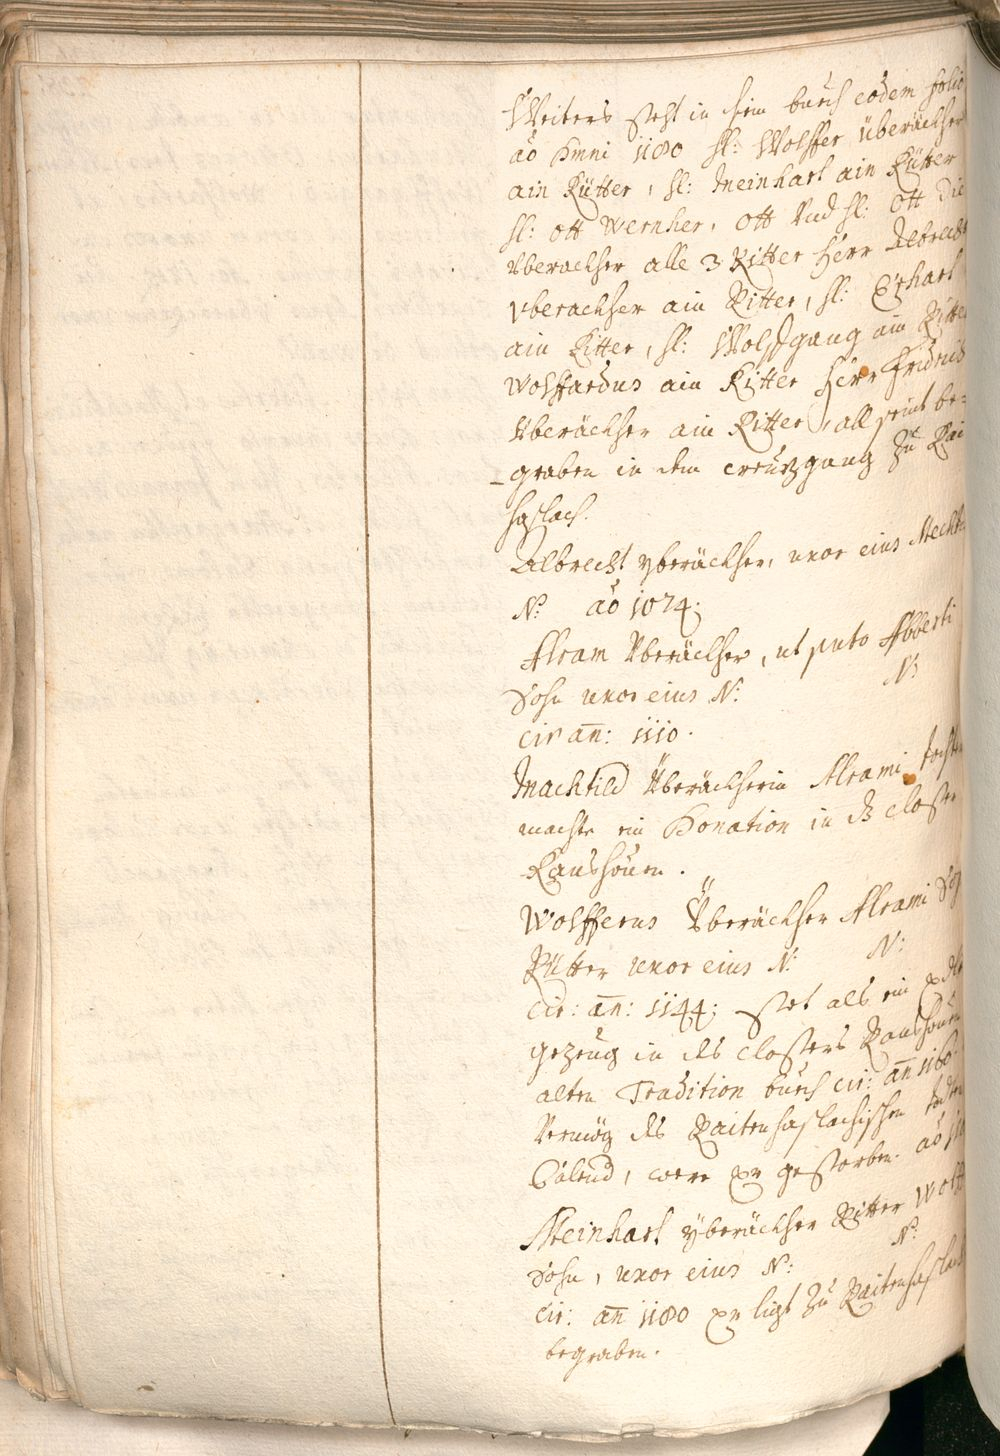 Weiters steht in sein buech eodem folio
aō Domi 1180 H: Wolffer überäckher
ain Rütter, H: Meinhart ain Rütter
H: ott Wernher, ott Vnd H: ott die
Vberackher alle 3 Ritter Herr Albrecht
yberackher ain Ritter, H: Erhart
ain Ritter, H: Wolfgang ain Ritter
Wolffardus ain Ritter Herr Fridrich
Vberäckher ain Ritter, all seint be=
graben in dem creuzgang zu Rai
haslach.
Albrecht yberäckher, uxor eius Mecht
N: aō 1074;
Alram Vberäckher, ut puto Adberti
Sohn uxor eius N: N:
cir añ: 1110.
Machtild Überäckherin Alrami tochter
machte ein Donation in dz closter
Ranshouen.
Wolfferus Überäckher Alrami Sohn
Rütter uxor eius N: N:
cir: añ: 1144; stet als ein edler
gezeug in des closters Ranshouen
alten Tradition buech cir: añ 1160.
Vermög des Raitenhaslachischen todten
Calend, were er gestorben aō 11
Meinhart yberäckher Ritter Wolff
Sohn, uxor eius N: N:
cir: añ 1180 er ligt zu Raitenhaslach
begraben.